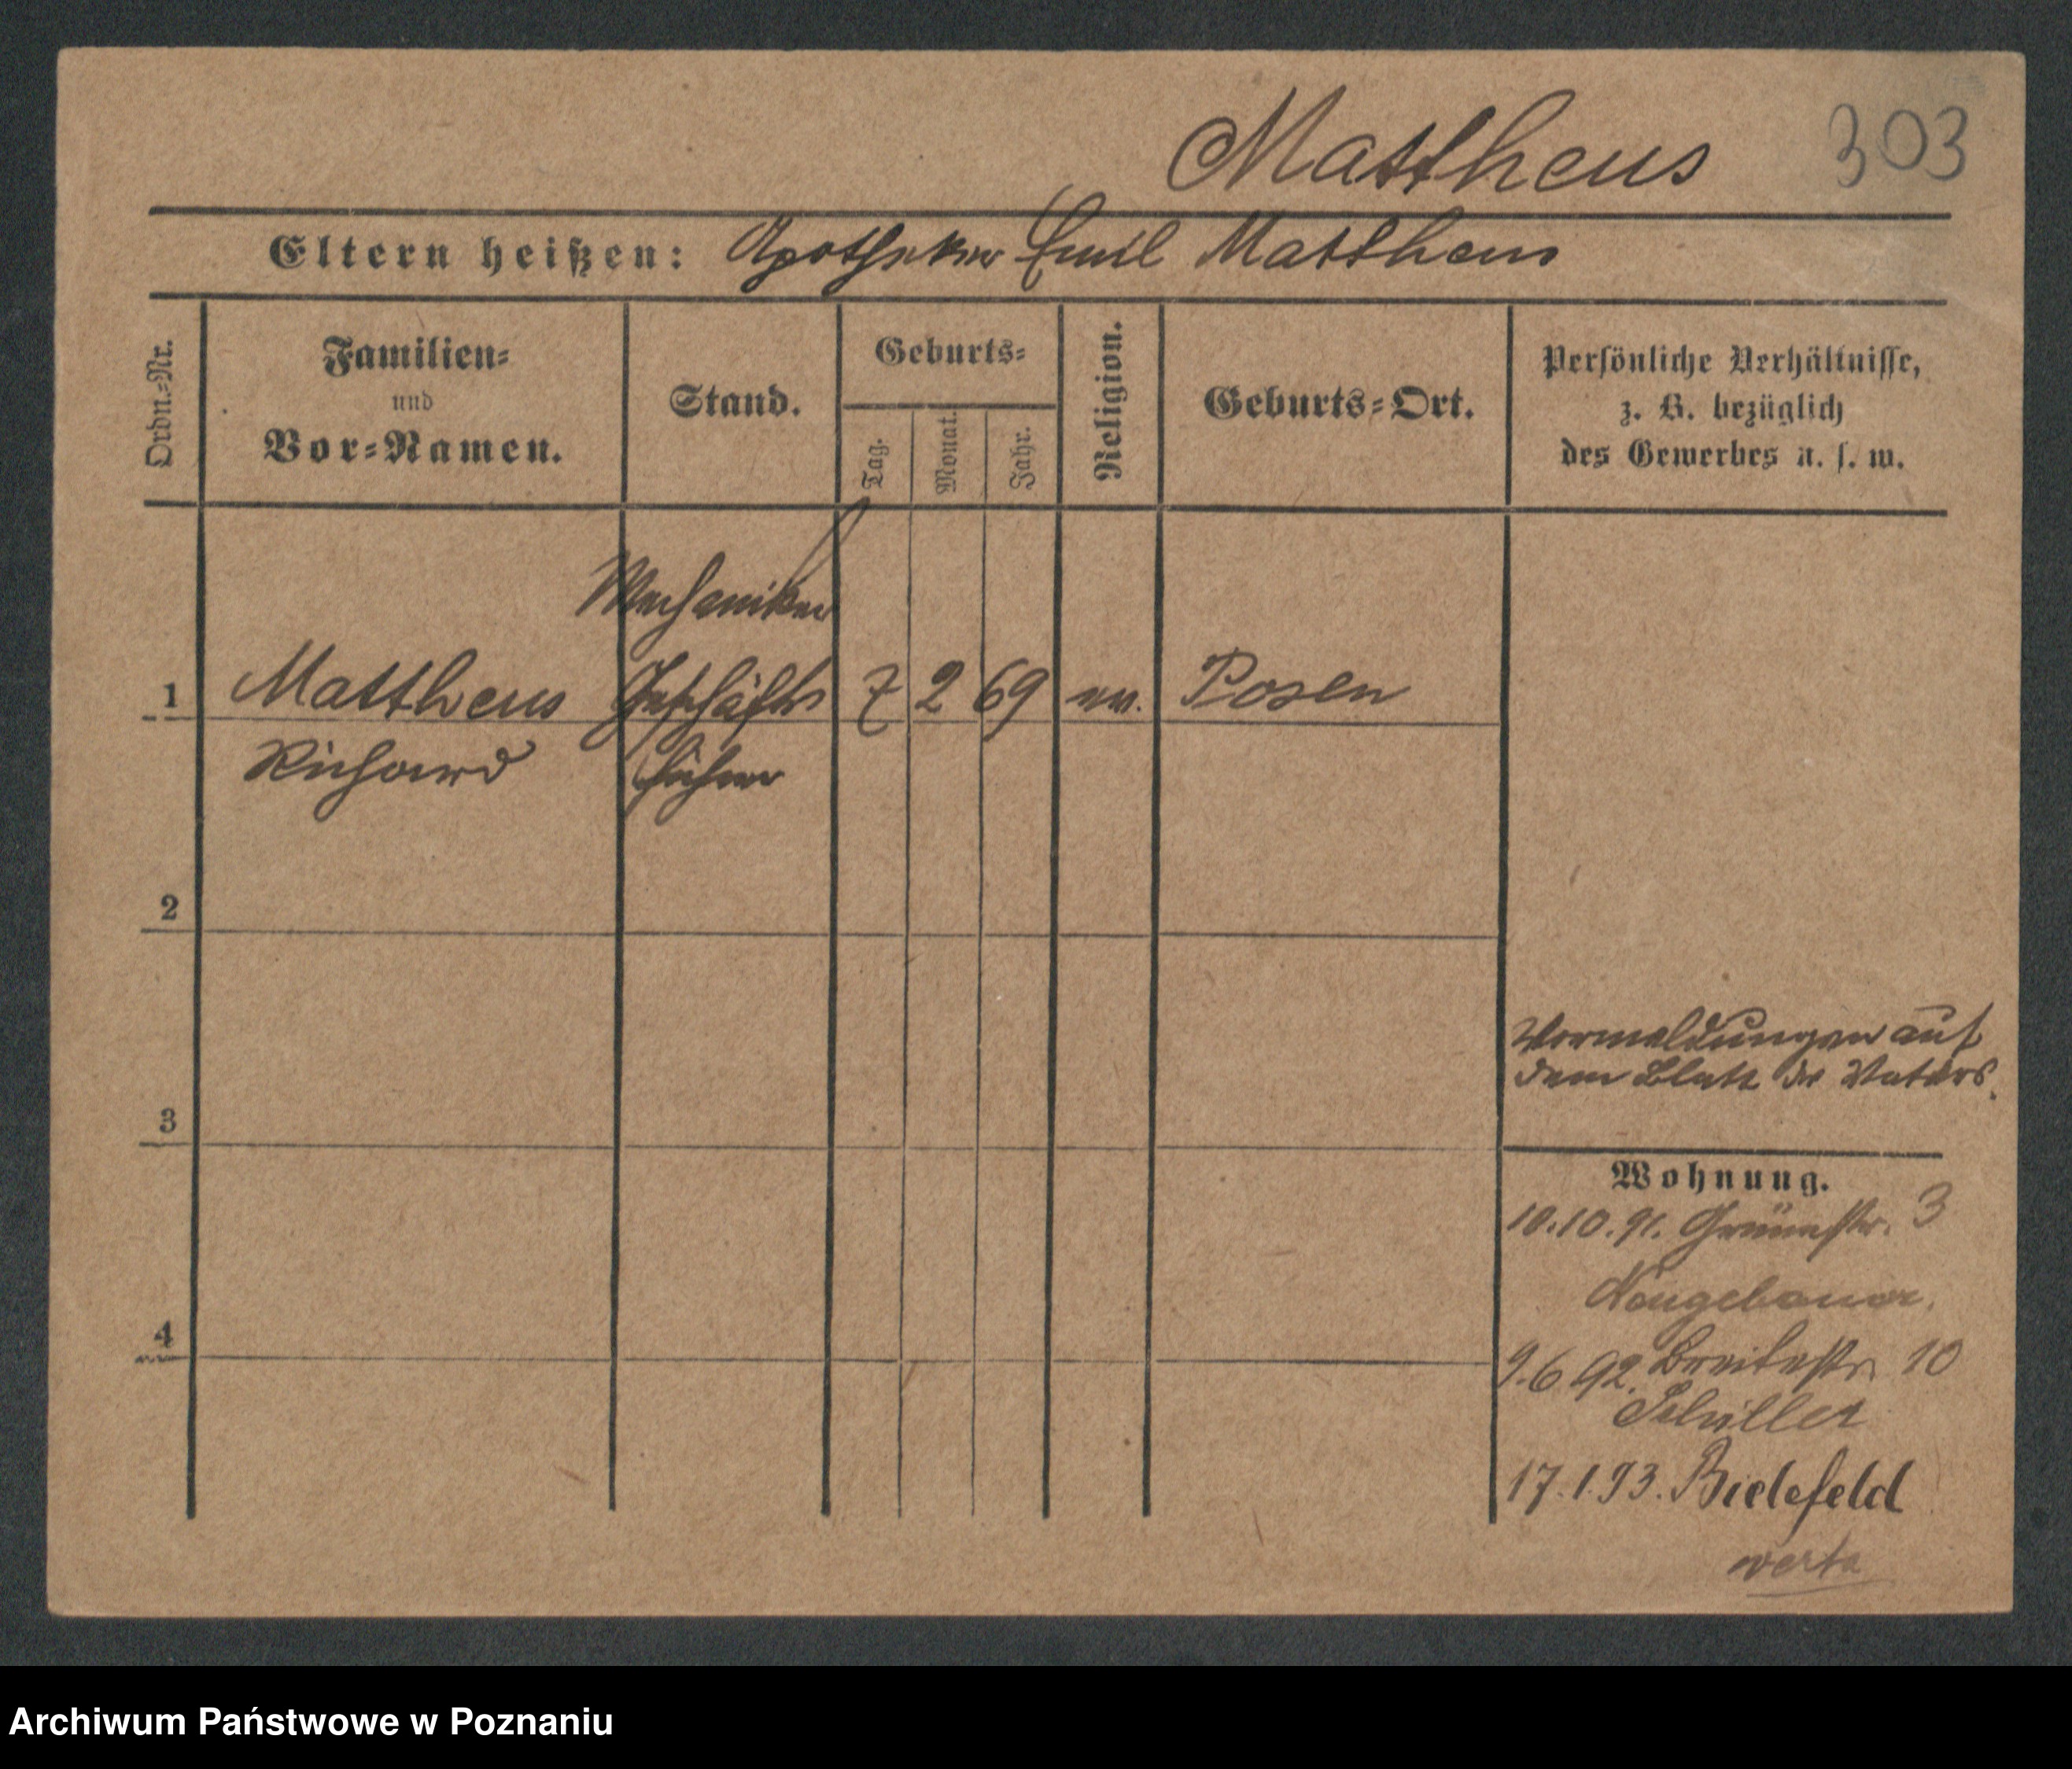 Mattheus 303
Eltern heißen: Apotheker Emil Mattheus
Ordn.-Nr.
Familien-
und
Vor-Namen.
Stand.
Geburts-
Tag.
Monat.
Jahr.
Religion.
Geburts-Ort.
Persönliche Verhältnisse,
z. B. bezüglich
des Gewerbes u. s. w.
Mechaniker
1 Mattheus Geschäfts 7 2 69 ev. Posen
Richard führer
2
3
4
Vormeldungen auf
dem Blatt des Vaters.
Wohnung.
10.10.91. Grünestr. 3
Neugebauer.
9.6.92. Breitestr. 10
17.1.93. Bielefeld
verta
Archiwum Państwowe w Poznaniu